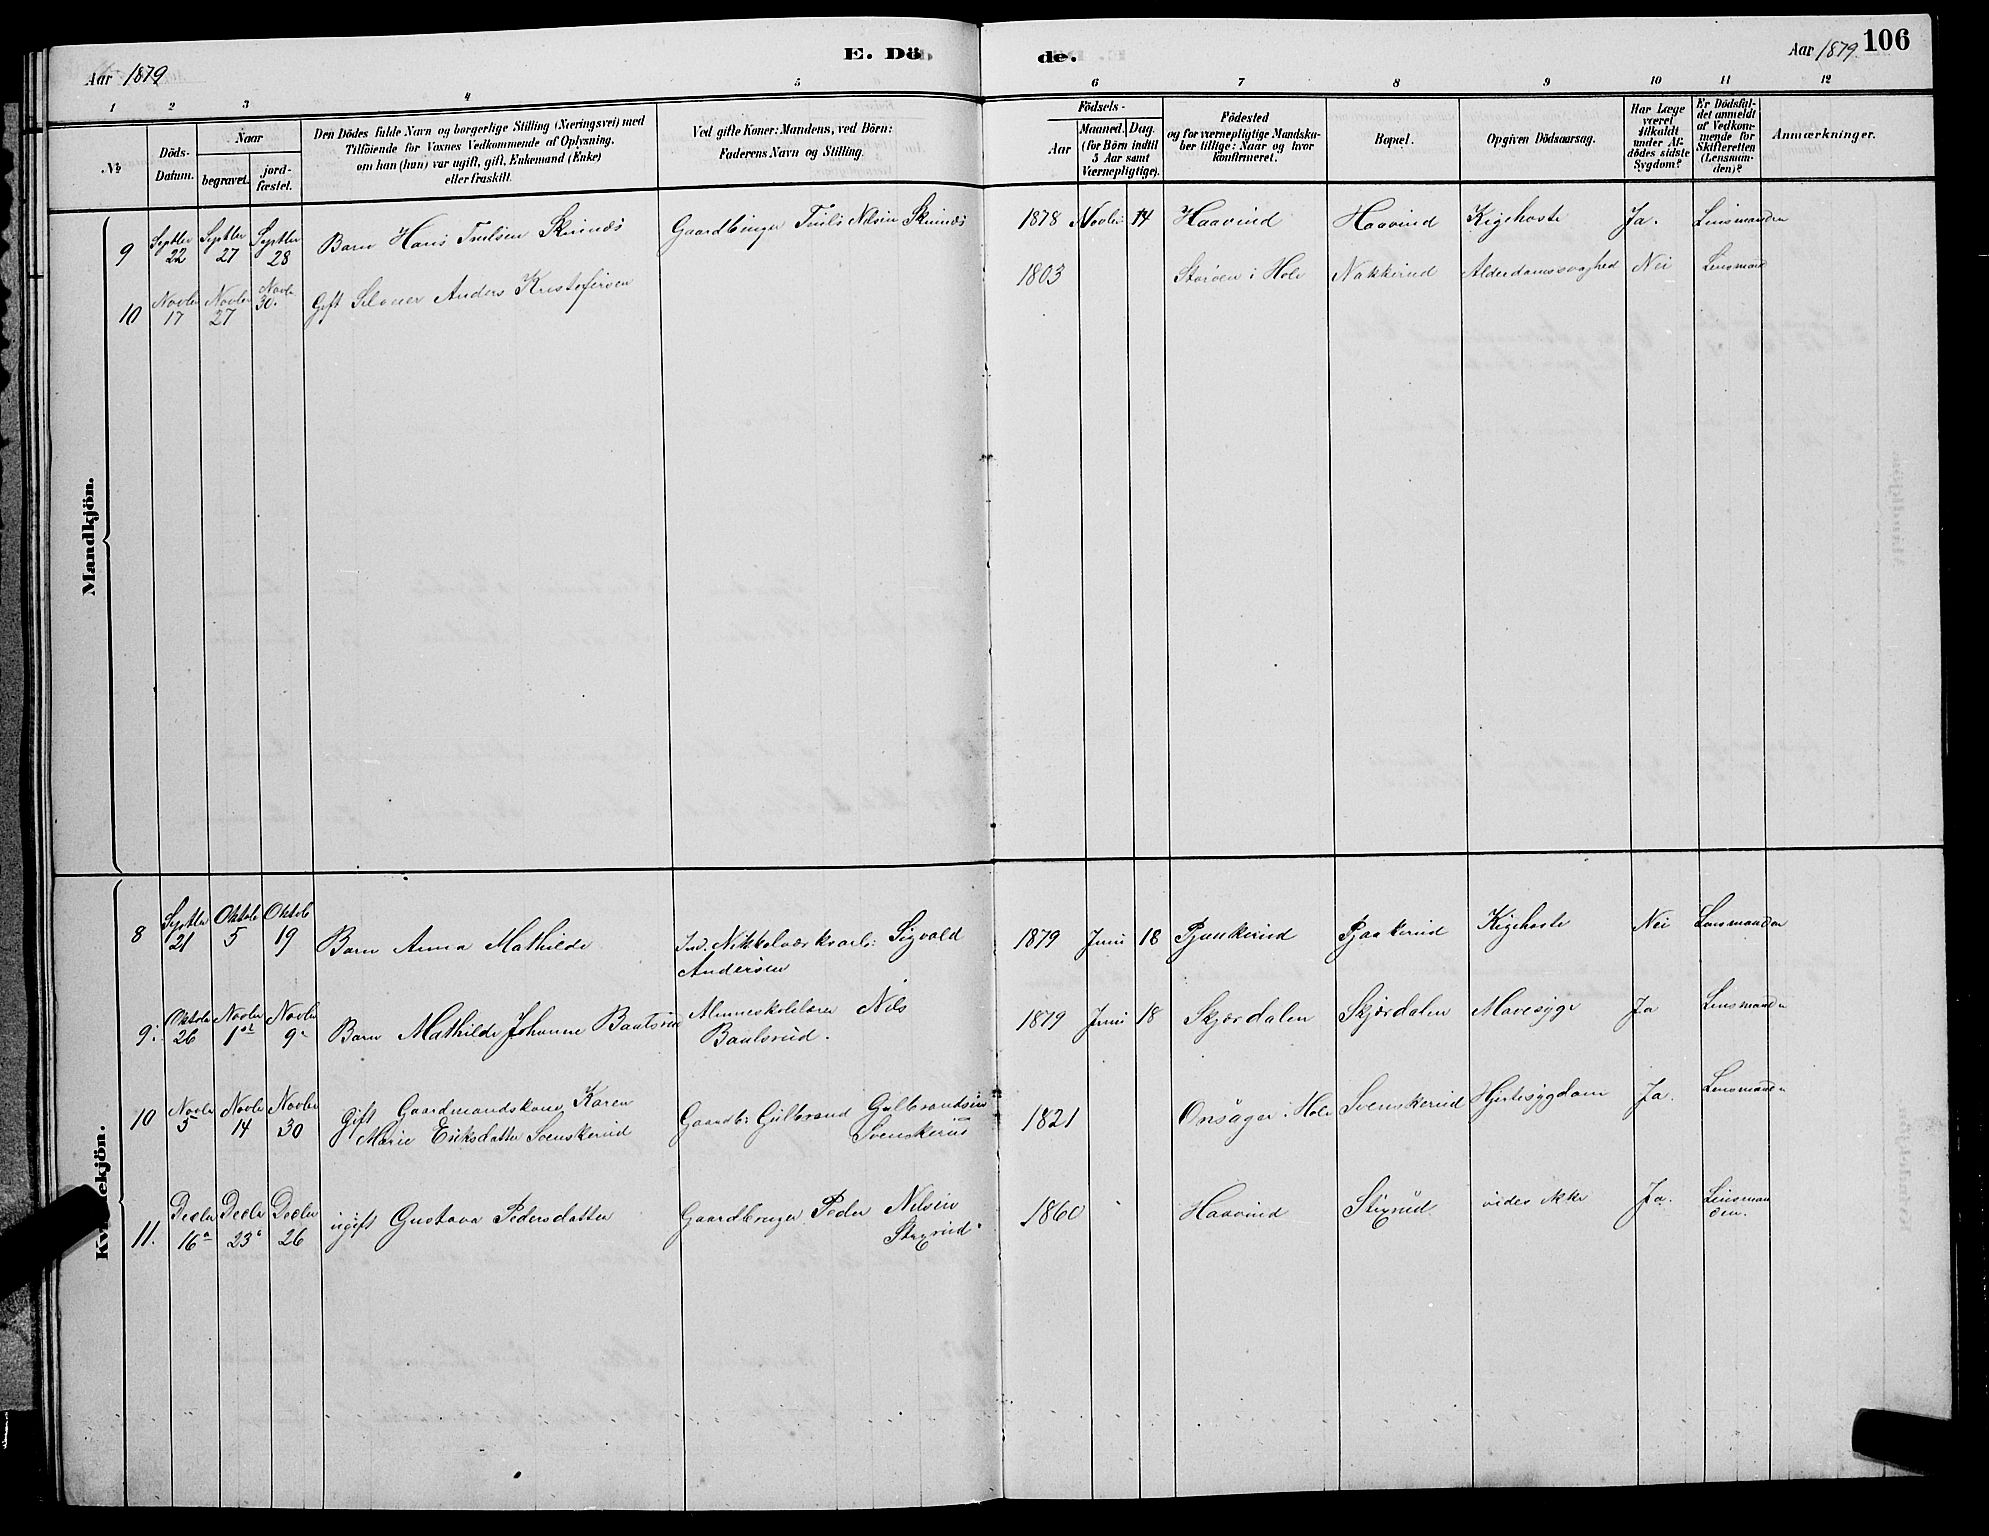 E. Dö de.
106
Aar 1879
Aar 1879
1 2 3 4 5 6 7 8 9 10 11 12
No
Döds-
Datum.
Naar
begravet.
jord-
fæstet.
Den Dödes fulde Navn og borgerlige Stilling (Næringsvei) med
Tilföiende for Voxnes Vedkommende af Oplysning,
om han (hun) var ugift, gift, Enkemand (Enke)
eller fraskilt.
Ved gifte Koner: Mandens, ved Börn:
Faderens Navn og Stilling.
Födsels-
Aar
Maaned.
Dag.
(for Börn indtil
5 Aar samt
Værnepligtige).
Födested
og for værnepligtige Mandska-
ber tillige: Naar og hvor
konfirmeret.
Bopæl.
Opgiven Dödsaarsag.
Har Læge
været
tilkaldt
under Af-
dödes sidste
Sygdom?
Er Dödsfal-
det anmeldt
af Vedkom-
mende for
Skifteretten
(Lensman-
den)?
Anmærkninger.
Mandkjön.
9 Septbr 22 Septbr 27 Septbr 28 Barn Hans Truls​en Skinnes Gaardbruger Truls Nilsen Skinnes 1878 Novbr: 14 Haavind Haavind Kighoste Ja. Lensmanden
10 Novbr 17 Novbr 27 Novbr 30. Gift Anders Kristofersen 1803 Storøen i Hole Nakkerud Alderdomssvaghed Nei Lensmand
Kvindekjön.
8 Septbr 21 Oktob 5 Oktob 19 Barn Anna Mathilde Ind. Nikkelværksarb: Sigvald
Andersen 1879 Juni 18 Pjaakerud Pjaakerud Kighoste Nei Lensmanden
9. Oktob 26 Novbr 1st Novbr 9. Barn Mathilde Johanne Baalsrud Almueskolelærer Nils
Baalsrud. 1879 Juni 18 Skjærdalen Skjørdalen Mavesyge Ja Lensmanden
10 Novbr 5 Novbr 14 Novbr 30 Gift Gaardmandskone Karen
Marie Eriksdatter Svenskerud Gaardb: Gulbrand Gulbrandsen
Svenskerud 1821 Onsager i Hole Svenskerud Hjertesygdom Ja. Lensmanden
11. Decbr 16 Decbr 23 Decbr 26 ugift Gustava Pedersdatter Gaardbruger Peder Nilsen
Stixrud 1860 Haavind Stixrud vides ikke Ja. Lensman
den.